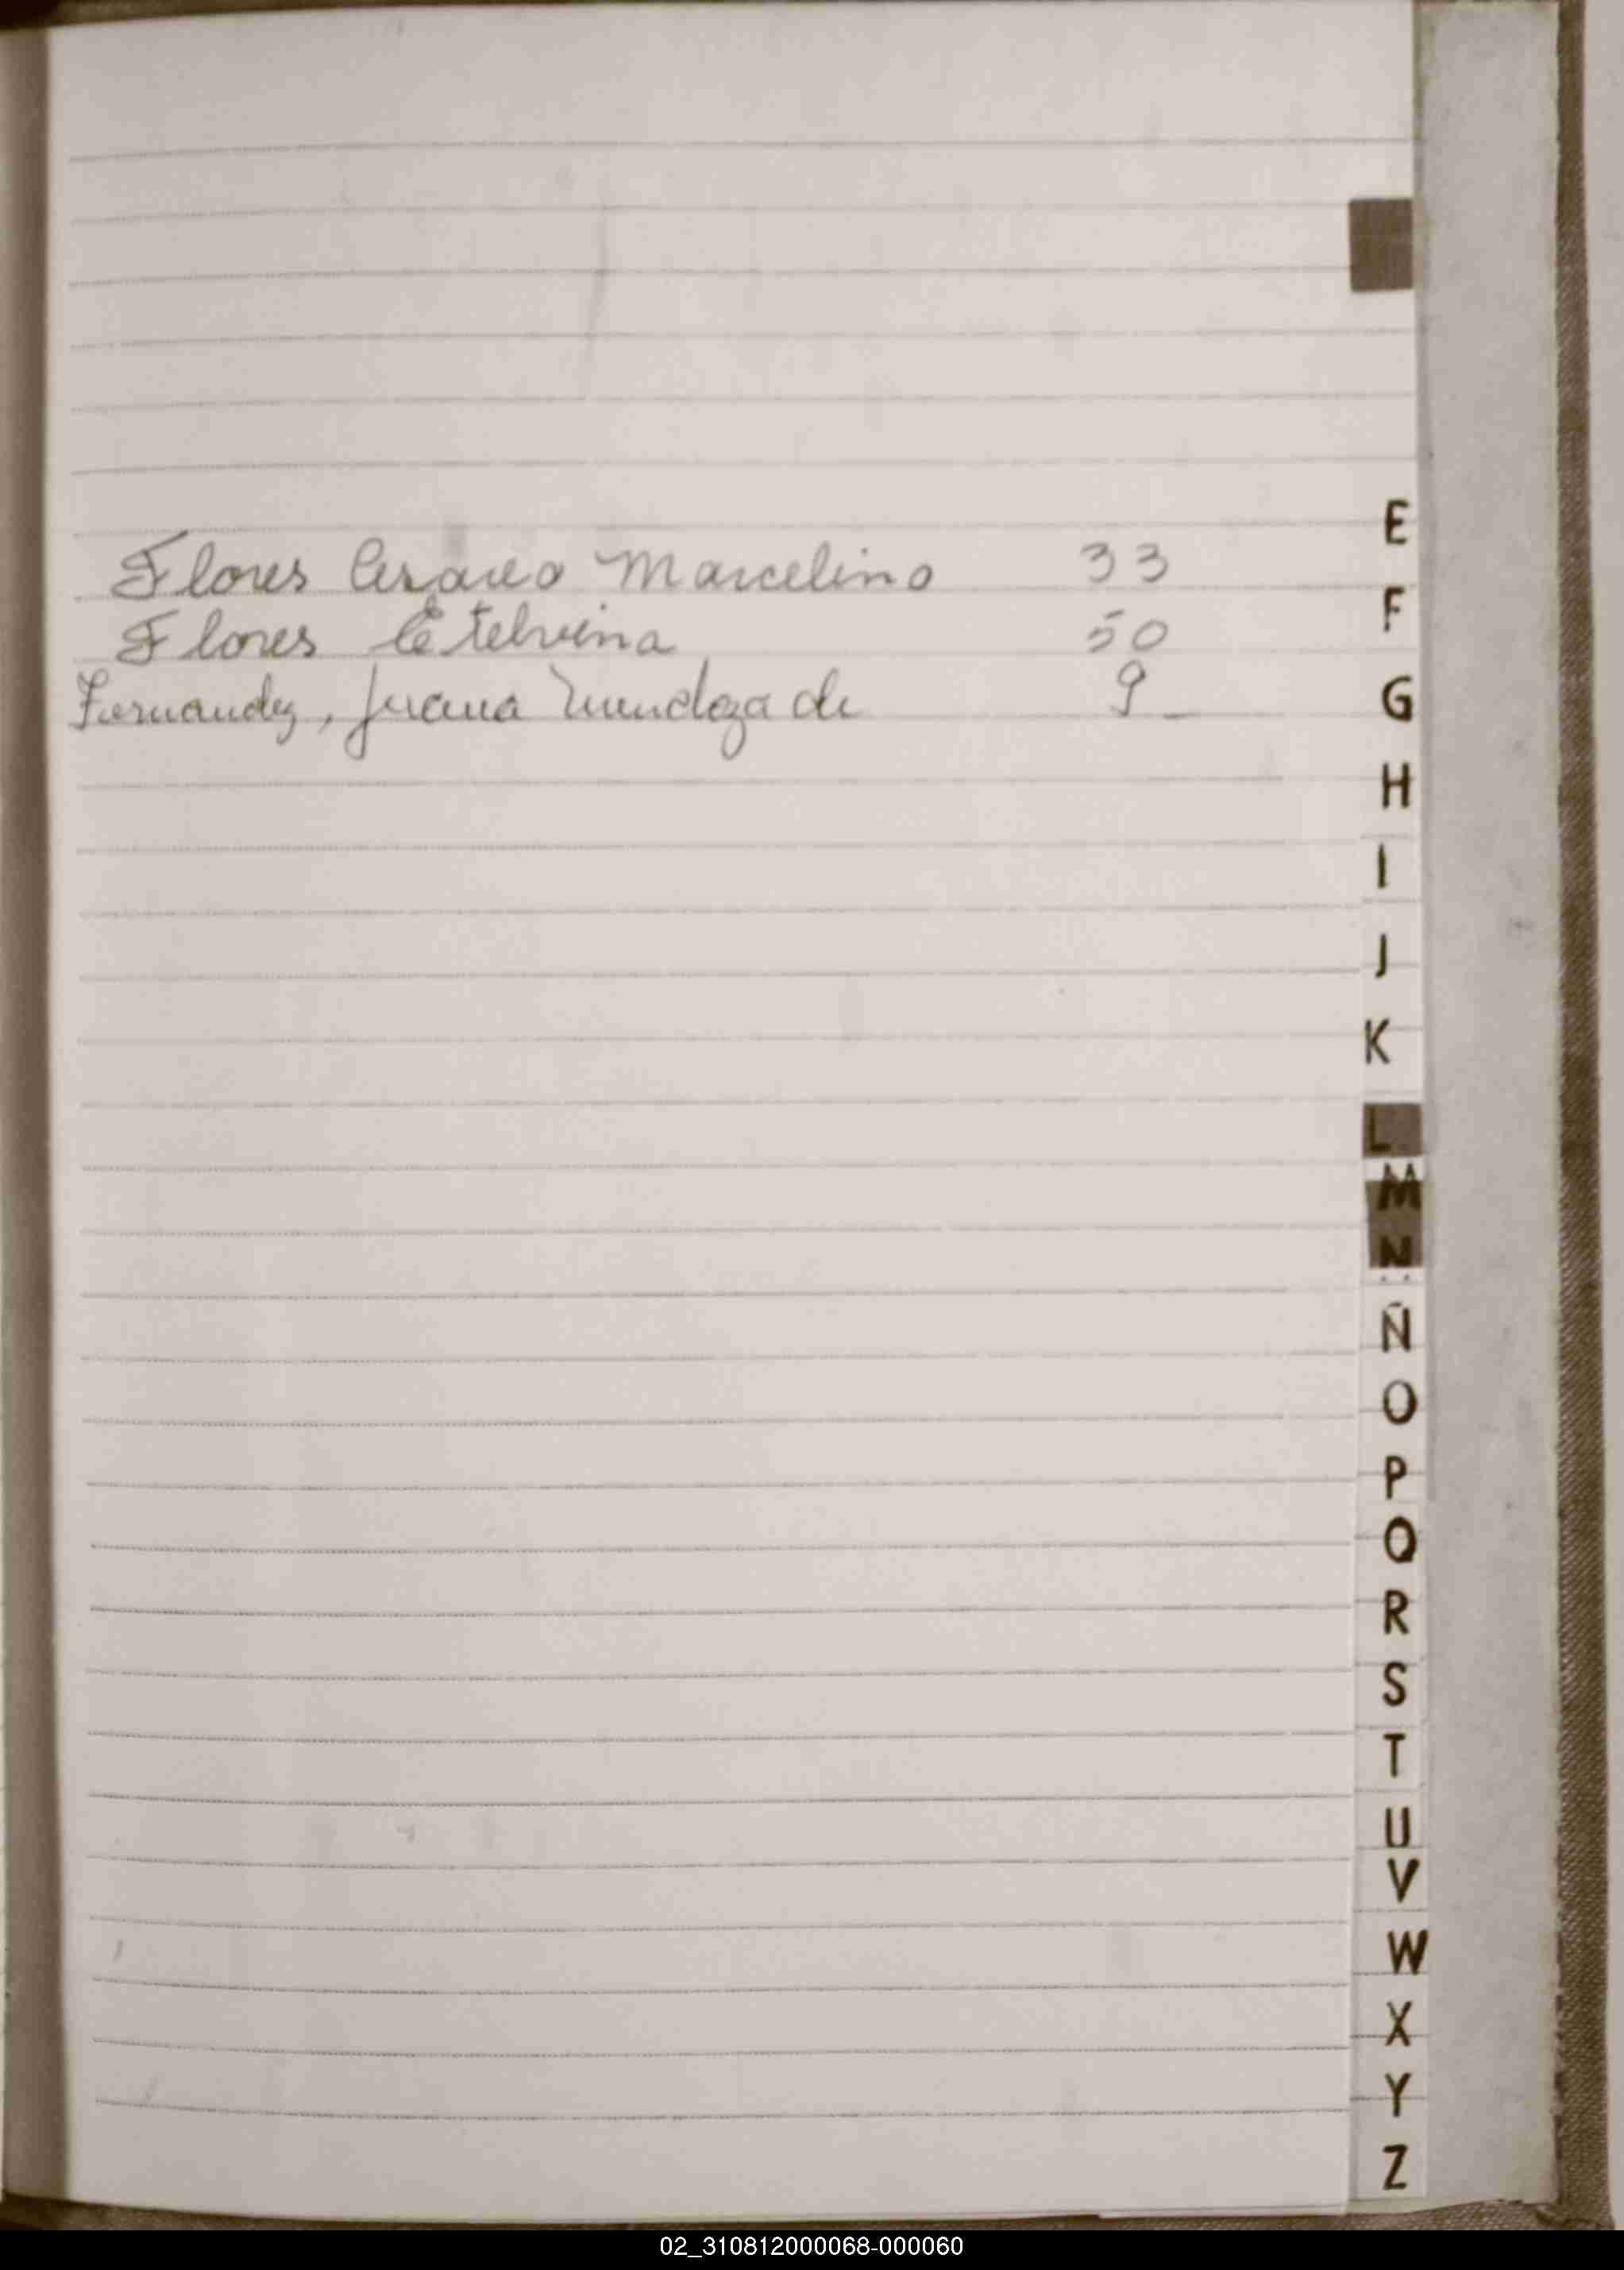 Flores Cesareo Marcelino 33
Flores Etelvina 50
Fernandez, Juana Mendoza de 9_
E
F
G
H
I
J
K
L
M
N
Ñ
O
P
Q
R
S
T
U
V
W
X
Y
Z
02_310812000068-000060